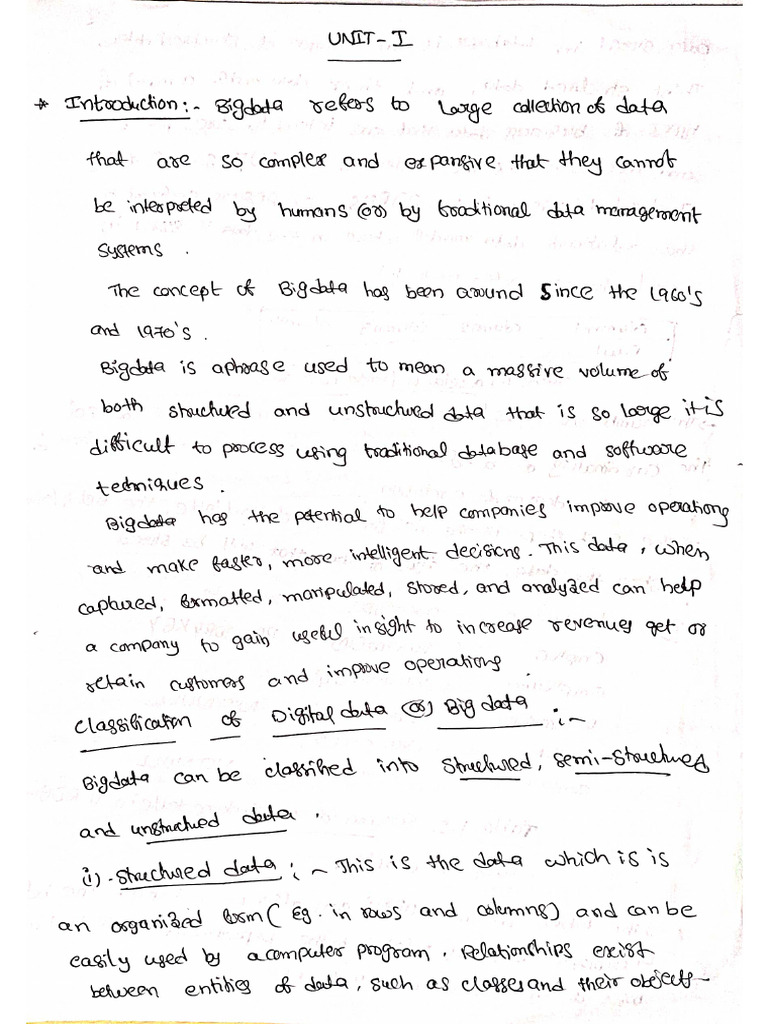 UNIT-I
* Introduction:- Bigdata refers to large collection of data
that are so complex and expansive that they cannot
be interpreted by humans (or) by traditional data management
systems.
The concept of Bigdata has been around since the 1960's
and 1970's.
Bigdata is a phrase used to mean a massive volume of
both structured and unstructured data that is so large it is
difficult to process using traditional database and software
techniques.
Bigdata has the potential to help companies improve operations
and make faster, more intelligent decisions. This data, when
captured, formatted, manipulated, stored, and analyzed can help
a company to gain useful insight to increase revenues get or
retain customers and improve operations
Classification of Digital data (or) Big data :-
Bigdata can be classified into structured, semi-structured
and unstructured data.
i) structured data :- This is the data which is is
an organized form (Eg. in rows and columns) and can be
easily used by a computer program. Relationships exist
between entities of data, such as classes and their objects-